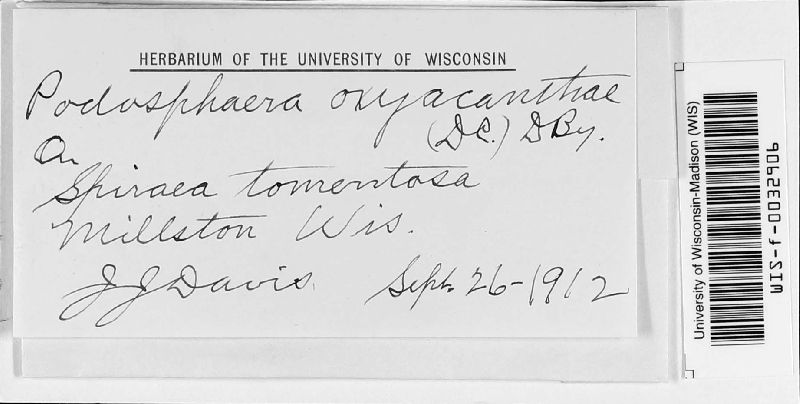 HERBARIUM OF THE UNIVERSITY OF WISCONSIN
Podosphaera oxyacanthae
(DC.) DBy.
On
Spiraea tomentosa
Millston Wis.
J J Davis. Sept. 26-1912
University of Wisconsin-Madison (WIS)
WIS-f-0032906